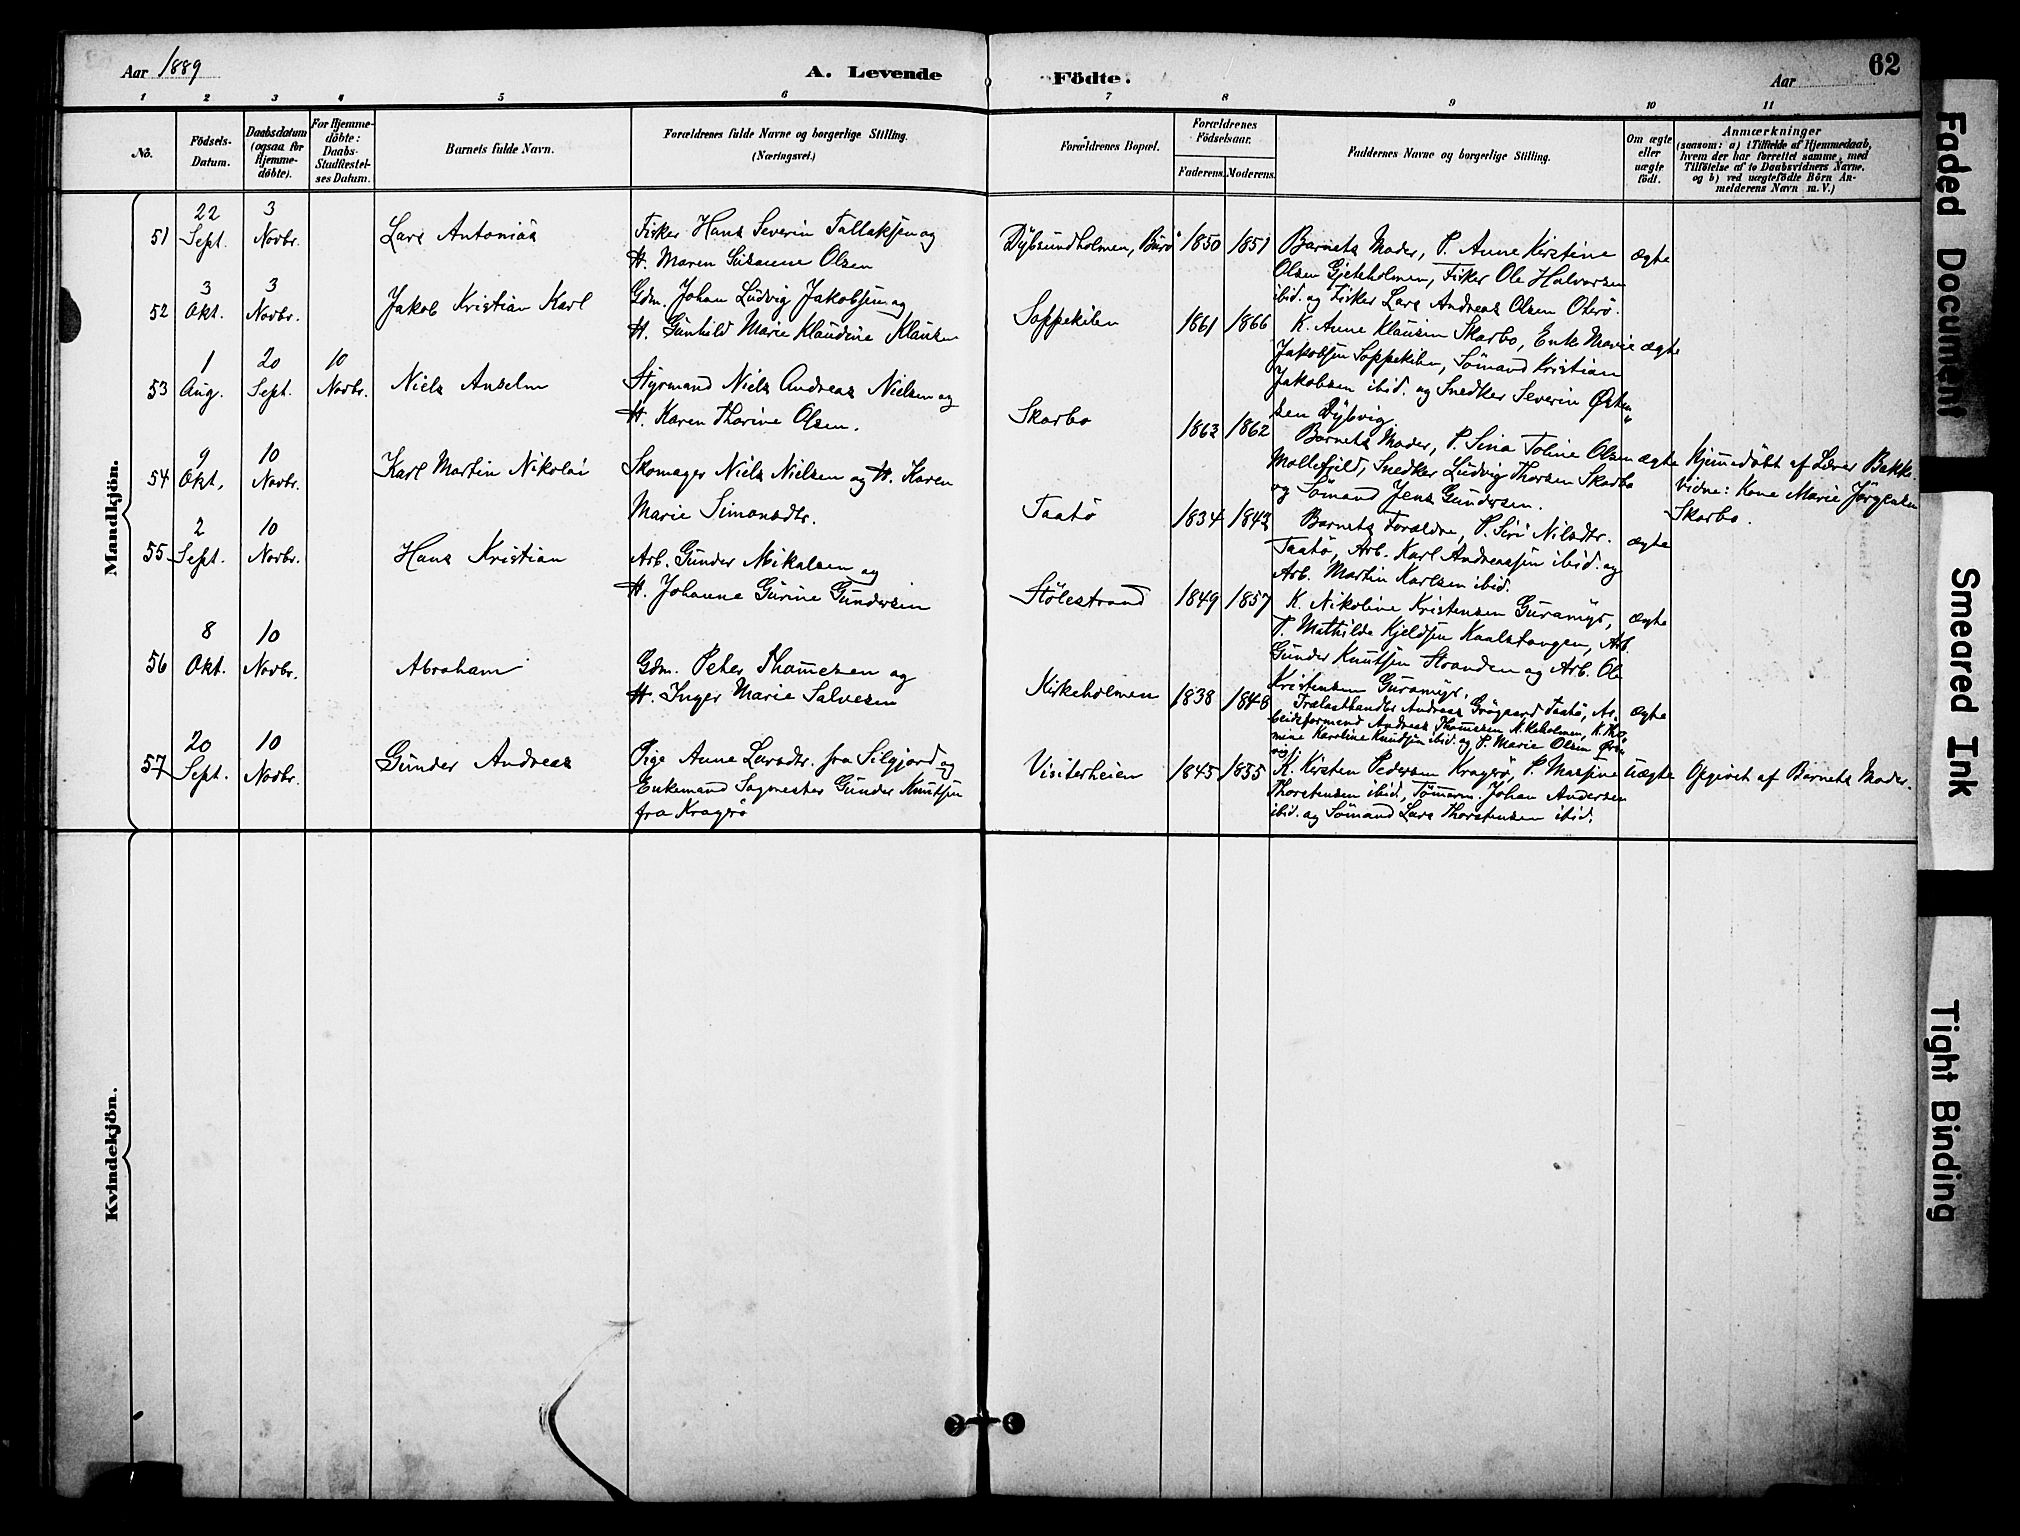 Aar 1889
A. Levende Födte.
Aar
62
1 2 3 4 5 6 7 8 9 10 11
No.
Födsels-Datum.
Daabsdatum (ogsaa for Hjemme-döbte).
For Hjemme-döbte: Daabs-Stadfæstel-ses Datum.
Barnets fulde Navn.
Forældrenes fulde Navne og borgerlige Stilling.
(Næringsvei.)
Forældrenes Bopæl.
Forældrenes Födselsaar.
Faderens. Moderens.
Faddernes Navne og borgerlige Stilling.
Om ægte eller uægte födt.
Anmærkninger
(saasom: a) i Tilfælde af Hjemmedaab,
hvem der har forrettet samme, med
Tilföielse af to Daabsvidners Navne.
og b) ved uægtefödte Börn An-
melderens Navn m. V.)
Mandkjön.
51 22 Sept. 3 Novbr. Lars Antonius
Fisker Hans Severin Tallaksen og
H. Maren Susanne Olsen
Dybsundholmen, Burö 1850 1851
Barnets Moder, P. Anne Kirstine
Olsen Gjeteholmen, Fisker Ole Halvorsen
ibid. og Fisker Lars Andreas Olsen Oterö.
ægte
52 3 Okt. 3 Novbr. Jakob Kristian Karl
Gdm. Johan Ludvig Jakobsen og
H. Gunhild Marie Klaudine Klausen
Soppekilen 1861 1866
K. Anne Klausen Skarbo, Enke Marie
Jakobsen Soppekilen, Sömand Kristian
Jakobsen ibid. og Snedker Severin Östen-
sen Dybvig.
ægte
53 1 Aug. 20 Sept. 10 Novbr. Niels Anselm
Styrmand Niels Andreas Nielsen og
H. Karen Thorine Olsen.
Skarbo 1863 1862
Barnets Moder, P. Sina Toline Olsen
Mollefjeld, Snedker Ludvig Thorsen Skarbo
og Sömand Jens Gundersen.
ægte
Hjemmedöbt af Lærer Bakke
Vidne: Kone Marie Jörgensen
Skarbo.
54 9 Okt. 10 Novbr. Karl Martin Nikolai
Skomager Niels Nielsen og H. Karen
Marie Simonsdtr.
Taatö 1834 1843
Barnets Forældre, P. Siri Nilsdtr.
Taatö, Arb. Karl Andreassen ibid. og
Arb. Martin Karlsen ibid.
ægte
55 2 Sept. 10 Novbr. Hans Kristian
Arb. Gunder Mikalsen og
H. Johanne Gurine Gundersen
Stölestrand 1849 1857
K. Nikoline Kristensen Guramyr,
P. Mathilde Kjeldsen Kaalstangen, Arb.
Gunder Knutsen Stranden og Arb. Ole
Kristensen Guramyr.
ægte
56 8 Okt. 10 Novbr. Abraham
Gdm. Peter Thomesen og
H. Inger Marie Salvesen
Kirkeholmen 1838 1846
Trælasthandler Andreas Grögaard Taatö, Ar-
beidsformand Andreas Thommesen Kirkeholmen, K. Tho-
mine Karoline Knudsen ibid. og P. Marie Olsen Ör-
vig.
ægte
57 20 Sept. 10 Novbr. Gunder Andreas
Pige Anne Larsdtr. fra Silgjord og
Enkemand Sagmester Gunder Knutsen
fra Kragerö
Visterheien 1845 1855
K. Kirsten Pedersen Kragerö, P. Massine
Thorstensen ibid., Tömmerm. Johan Andersen
ibid. og Sömand Lars Thorstensen ibid.
Uægte
Opgivet af Barnets Moder.
Kvindekjön.
Faded Document
Smeared Ink
Tight Binding